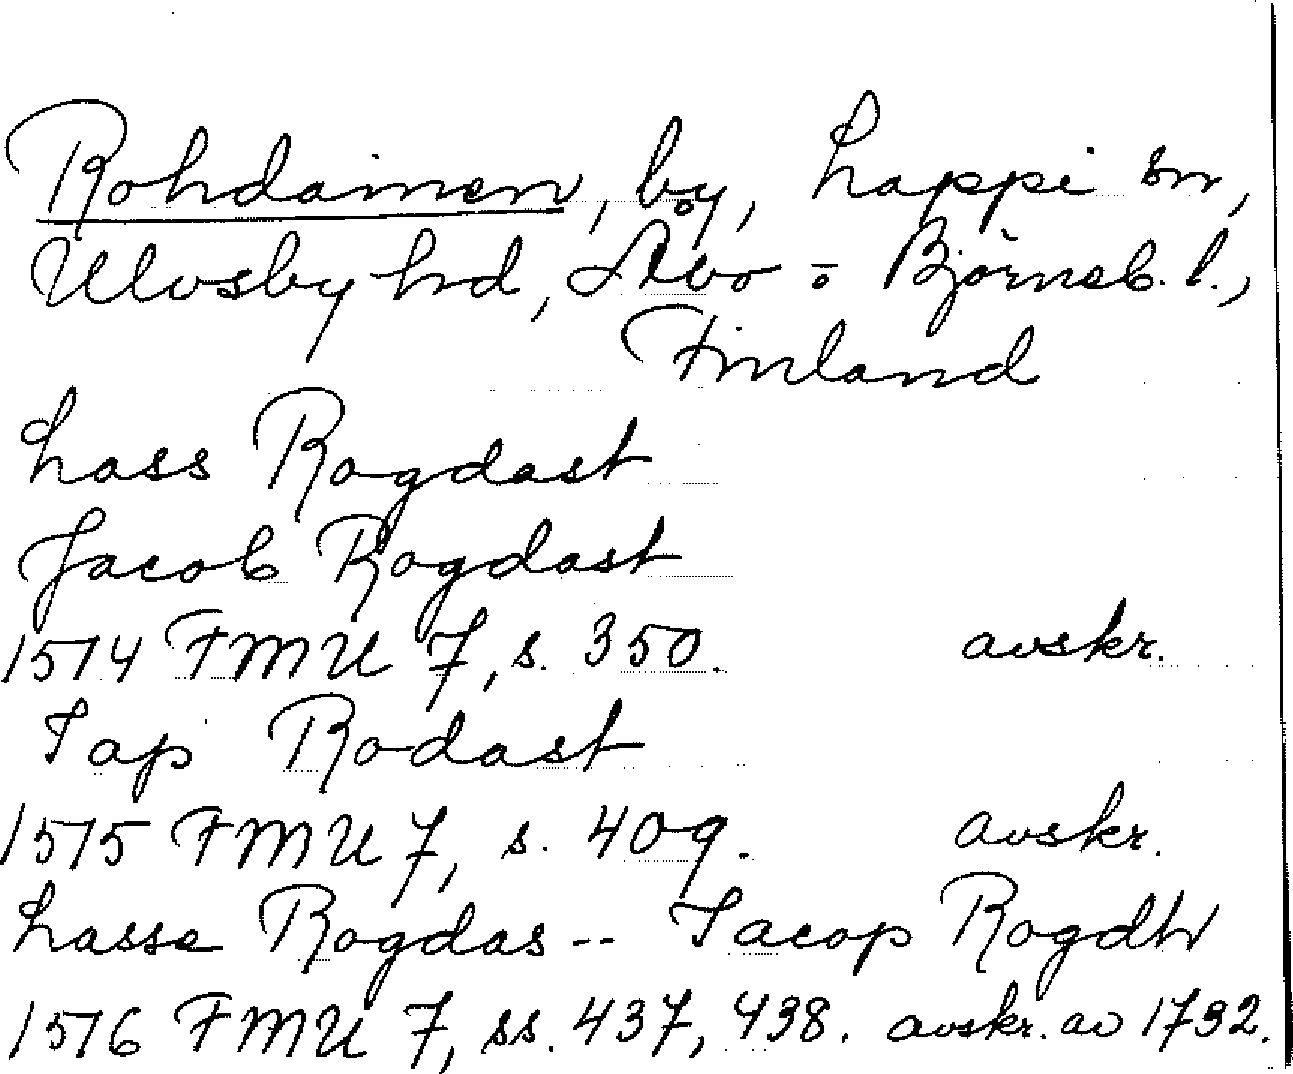 Rohdainen, by, Lappi sn,
Ulvsby hd, Åbo = Björneb. l.,
Finland
Lass Rogdast
Jacob Rogdast
1514 FMU 7, s. 350. avskr.
Jap Rodast
1515 FMU 7, s. 409. avskr.
Lasse Rogdas -- Jacop Rogdh
1516 FMU 7, ss. 437, 438. avskr. av 1732.